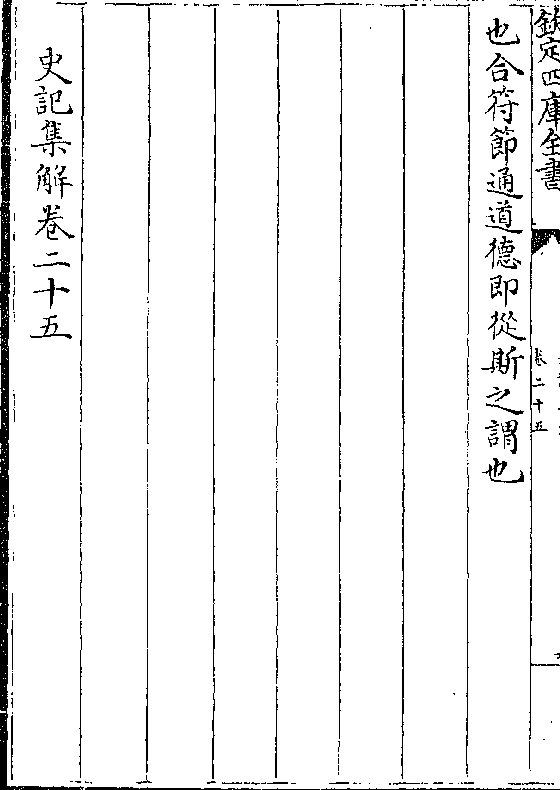 欽定四庫全書
卷二十五
也合符節通道德即從斯之謂也
史記集解卷二十五